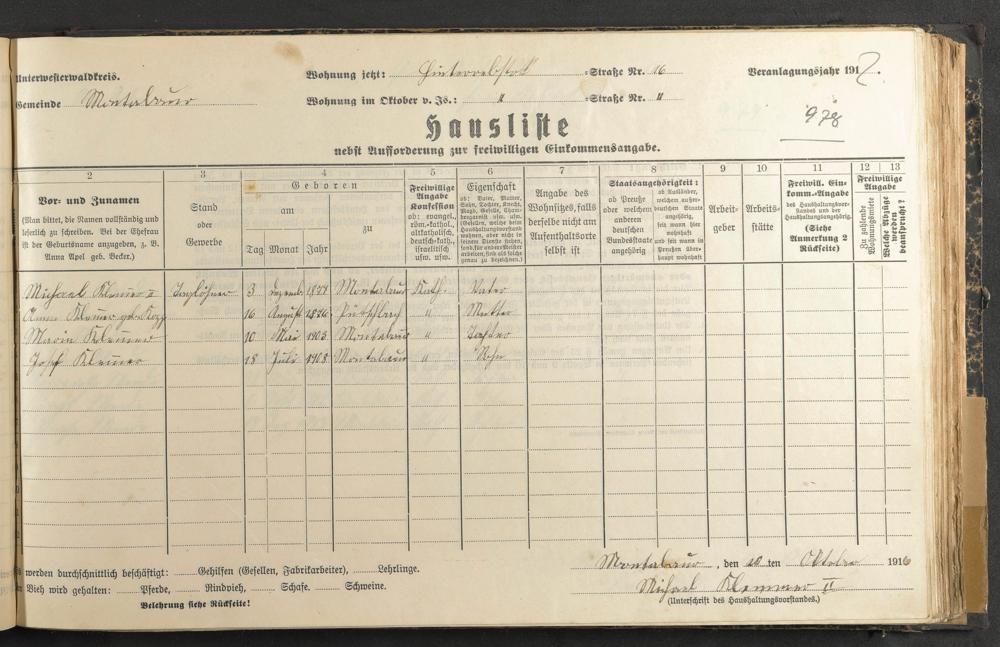 Unterwesterwaldkreis.
Wohnung jetzt: =Straße Nr. 16
Veranlagungsjahr 1917.
Gemeinde Montabaur
Wohnung im Oktober v. Js.: " =Straße Nr. "
978
Hausliste
nebst Aufforderung zur freiwilligen Einkommensangabe.
2 3 4 5 6 7 8 9 10 11 12 13
Vor- und Zunamen
(Man bittet, die Namen vollständig und
leserlich zu schreiben. Bei der Ehefrau
ist der Geburtsname anzugeben, z. B.
Anna Apel geb. Becker.)
Stand
oder
Gewerbe
Geboren
am
zu
Tag Monat Jahr
Freiwillige
Angabe
Konfession
ob: evangel.,
röm.-kathol.,
altkatholisch,
deutsch-kath.,
israelitisch
usw. usw.
Eigenschaft
ob: Vater, Mutter,
Sohn, Tochter, Knecht,
Magd, Geselle, Cham-
bregarnist usw. usw.
(Gesellen, welche beim
Haushaltungsvorstand
wohnen, aber nicht in
seinem Dienste stehen,
sond. für andere Meister
arbeiten, sind als solche
genau zu bezeichnen.)
Angabe des
Wohnsitzes, falls
derselbe nicht am
Aufenthaltsorte
selbst ist
Staatsangehörigkeit:
ob Preuße
oder welchem
anderen
deutschen
Bundesstaate
angehörig
ob Ausländer,
welchem außer-
deutschen Staate
angehörig,
seit wann hier
wohnhaft
und seit wann in
Preußen über-
haupt wohnhaft
Arbeit-
geber
Arbeits-
stätte
Freiwill. Ein-
komm.-Angabe
des Haushaltungsvor-
standes und der
Haushaltungsangehörig.
(Siehe
Anmerkung 2
Rückseite)
Freiwillige
Angabe
Zu zahlende
Wohnungsmiete
Welche Abzüge
werden
beansprucht?
Michael Klemmer II Taglöhner 3 Dezemb. Montabaur Kath. Vater
Anna Klemmer geb. Kopp 16 August 1876 " Mutter
Maria Klemmer 10 Mai 1903 Montabaur " Tochter
Josef Klemmer 18 Juli 1908 Montabaur " Sohn
werden durchschnittlich beschäftigt: Gehilfen (Gesellen, Fabrikarbeiter), Lehrlinge.
Vieh wird gehalten: Pferde, Rindvieh, Schafe. Schweine.
Belehrung siehe Rückseite!
Montabaur, den ten Oktober 1916
Michael Klemmer II
(Unterschrift des Haushaltungsvorstandes.)